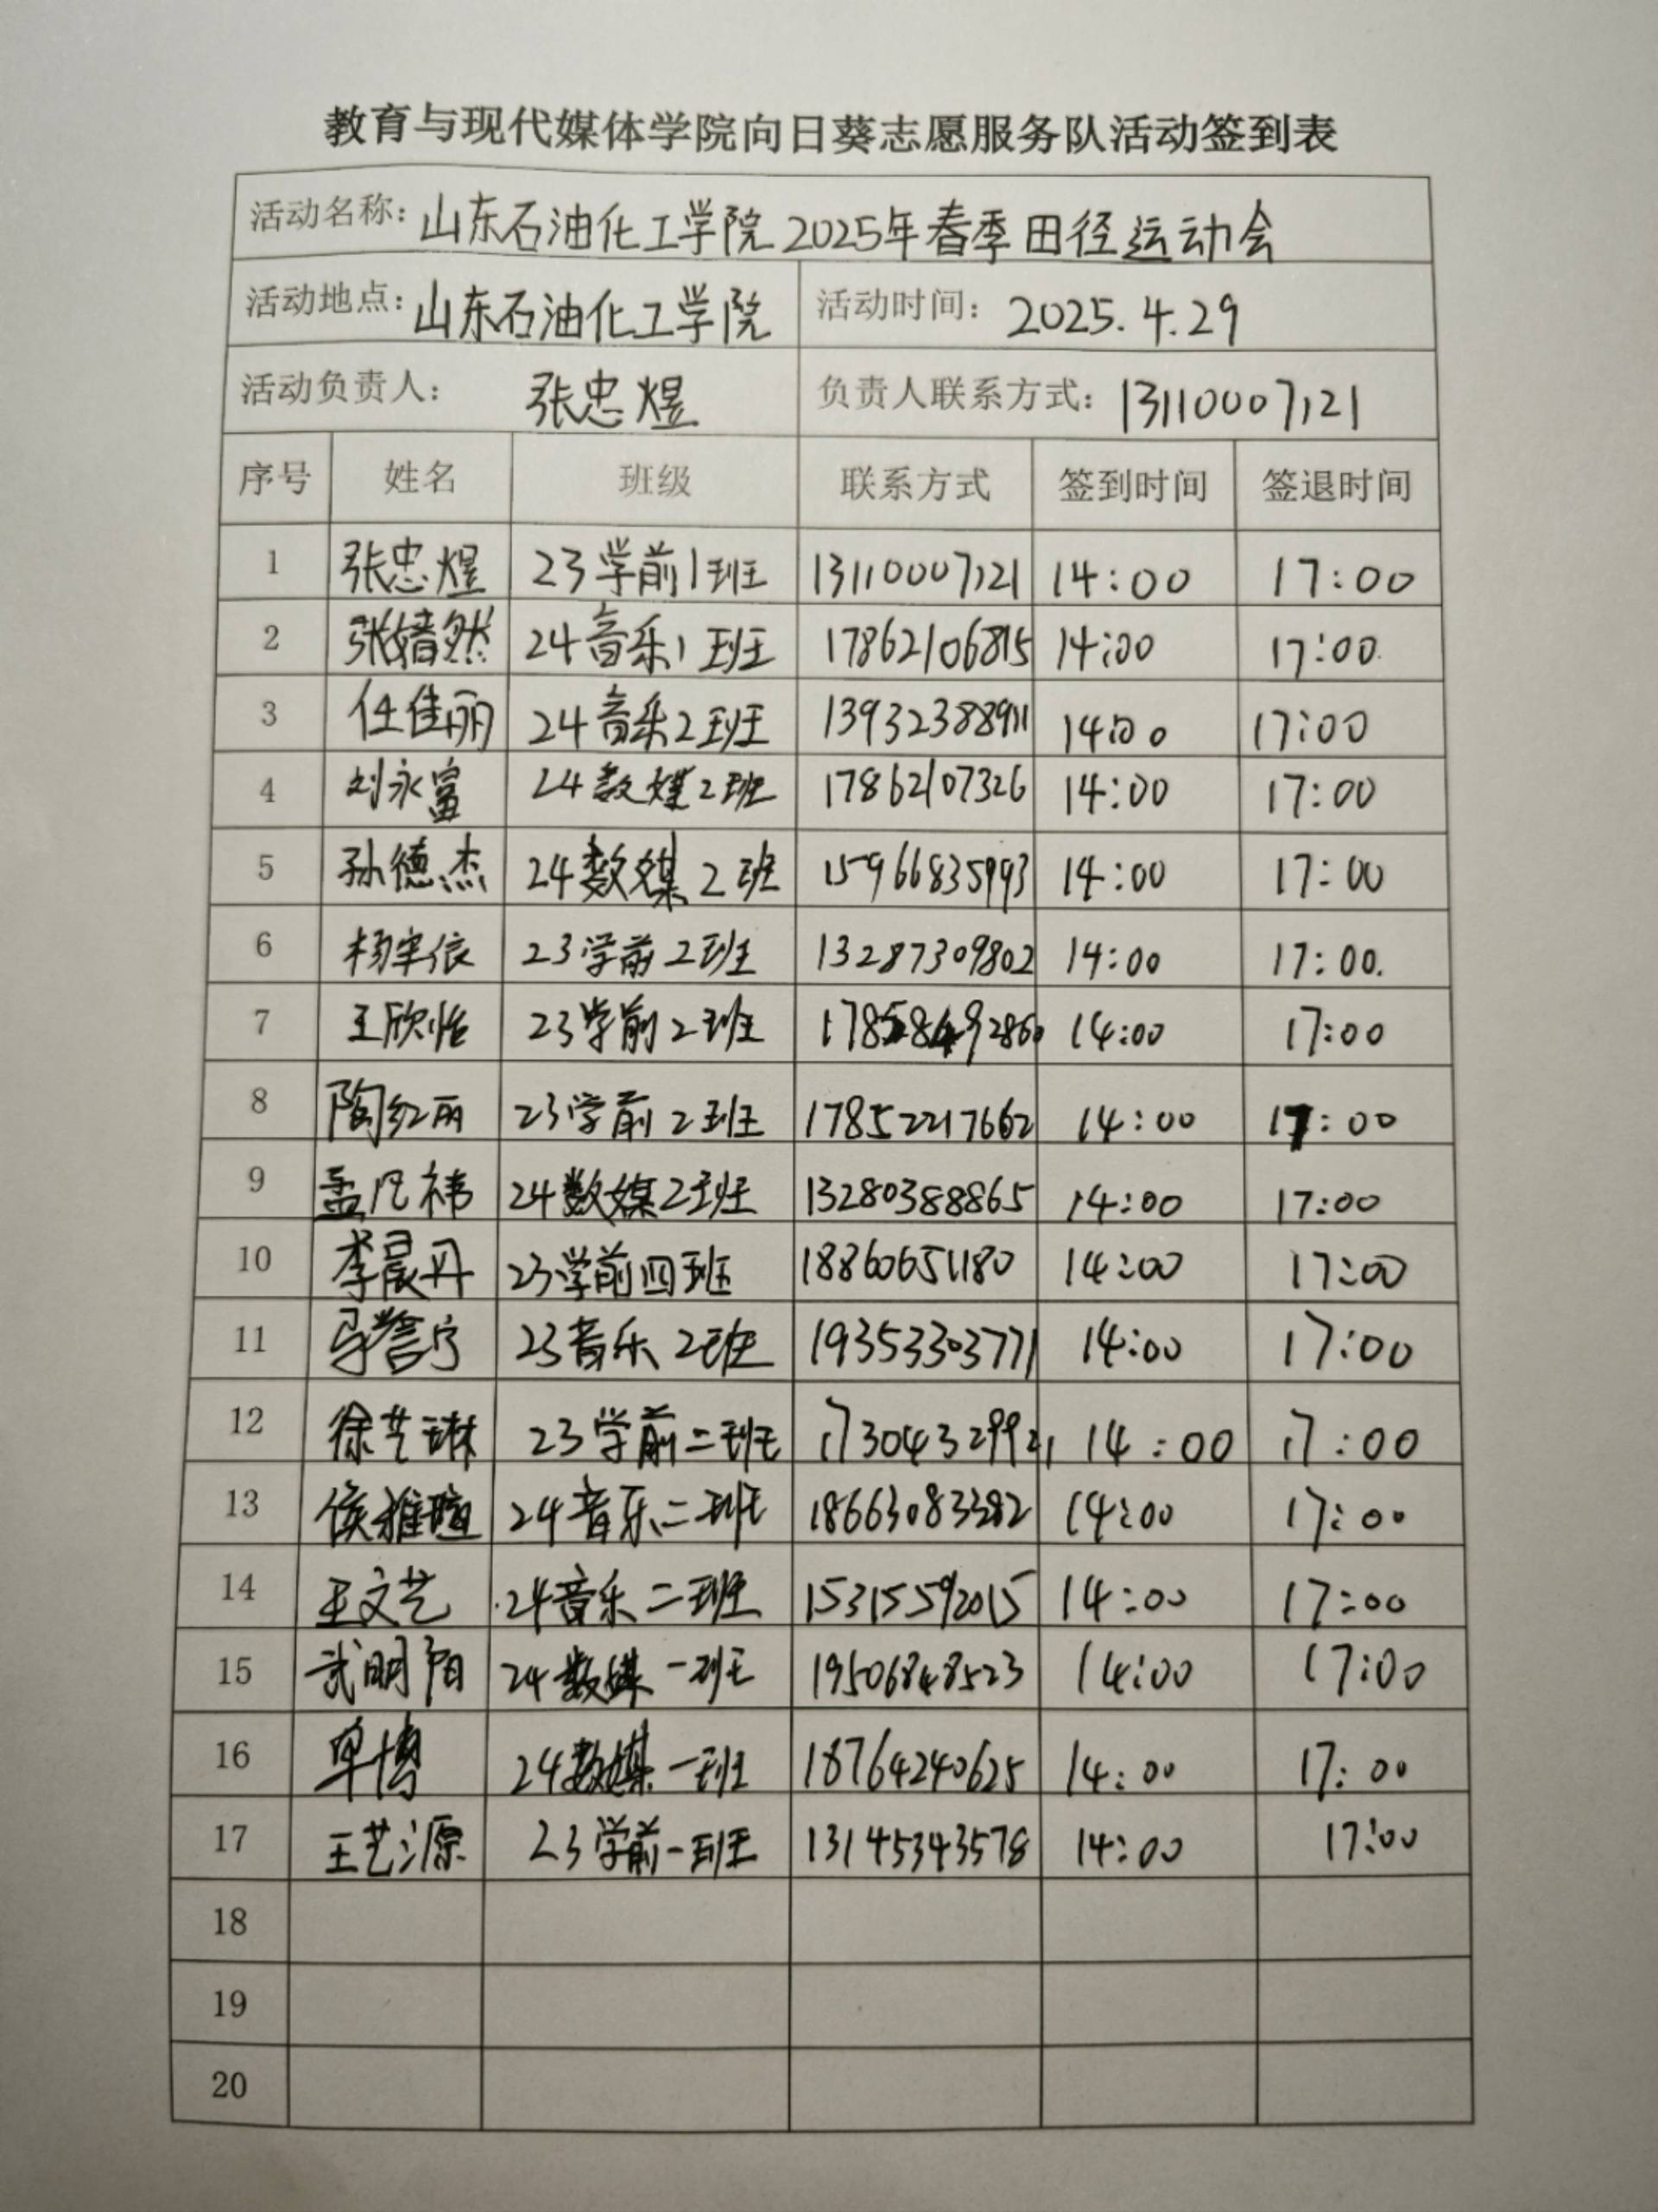 教育与现代媒体学院向日葵志愿服务队活动签到表
活动名称：山东石油化工学院2025年春季田径运动会
活动地点：山东石油化工学院 活动时间：2025.4.29
活动负责人：张忠煜 负责人联系方式：13110007121
序号 姓名 班级 联系方式 签到时间 签退时间
1 张忠煜 23学前1班 13110007121 14:00 17:00
2 张婧然 24音乐1班 17862106815 14:00 17:00
3 任佳丽 24音乐2班 13932388911 14:00 17:00
4 刘永富 24数媒2班 17862107326 14:00 17:00
5 孙德杰 24数媒2班 15966835993 14:00 17:00
6 23学前2班 13287309802 14:00 17:00.
7 王欣怡 23学前2班 14:00 17:00
8 陶红丽 23学前2班 17852217662 14:00 17:00
9 孟凡祎 24数媒2班 13280388865 14:00 17:00
10 李晨丹 23学前四班 18860651180 14:00 17:00
11 马誉宁 23音乐2班 19353303771 14:00 17:00
12 徐艺琳 23学前二班 17304329921 14:00 17:00
13 侯雅瑄 24音乐二班 18663083382 14:00 17:00
14 王文艺 24音乐二班 15315592015 14:00 17:00
15 武明阳 24数媒一班 19506848523 14:00 17:00
16 单博 24数媒一班 18764240625 14:00 17:00
17 王艺源 23学前一班 13145343578 14:00 17:00
18
19
20